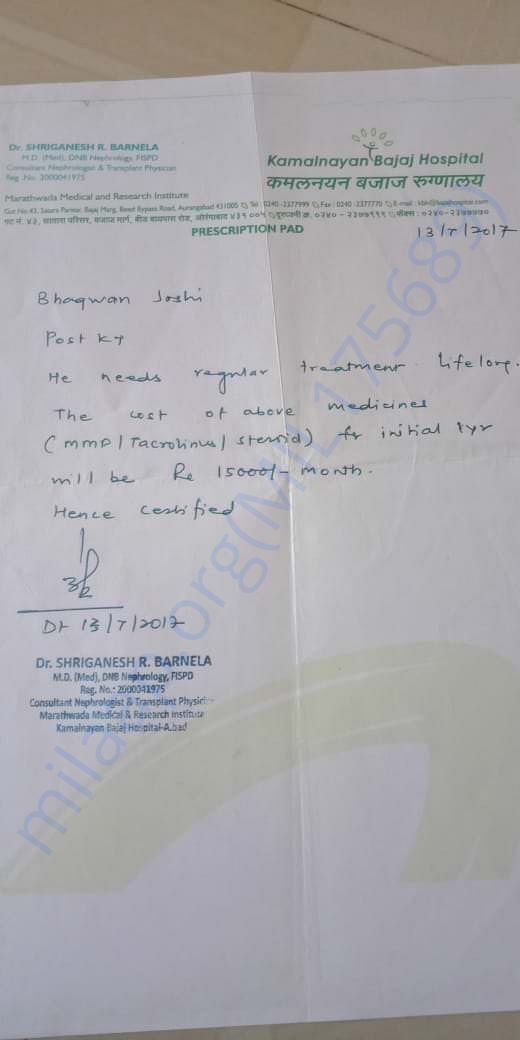 Dr. SHRIGANESH R. BARNELA
M.D. (Med), DNB Nephrology, FISPD
Consultant Nephrologist & Transplant Physician
Reg. No. 2000041975
Kamalnayan Bajaj Hospital
कमलनयन बजाज रुग्णालय
Marathwada Medical and Research Institute
Gut No 43, Satara Parisar, Bajaj Marg, Beed Bypass Road, Aurangabad 431005 Tel : 0240-2377999 Fax : 0240-2377770 E-mail : kbh@bajajhospital.com
गट नं. ४३, सातारा परिसर, बजाज मार्ग, बीड बायपास रोड, औरंगाबाद ४३१ ००५ दूरध्वनी क्र. ०२४० - २३७७९९९ फॅक्स : ०२४०-२३७७७७०
PRESCRIPTION PAD
13/7/2017
Bhagwan Joshi
Post KT
He needs regular treatment lifelong.
The cost of above medicines
(MMF/Tacrolimus/steroid) for initial 1yr
will be Rs 15000/- month.
Hence certified
Dt 13/7/2017
Dr. SHRIGANESH R. BARNELA
M.D. (Med), DNB Nephrology, FISPD
Reg. No.: 2000041975
Consultant Nephrologist & Transplant Physician
Marathwada Medical & Research Institute
Kamalnayan Bajaj Hospital-A.bad